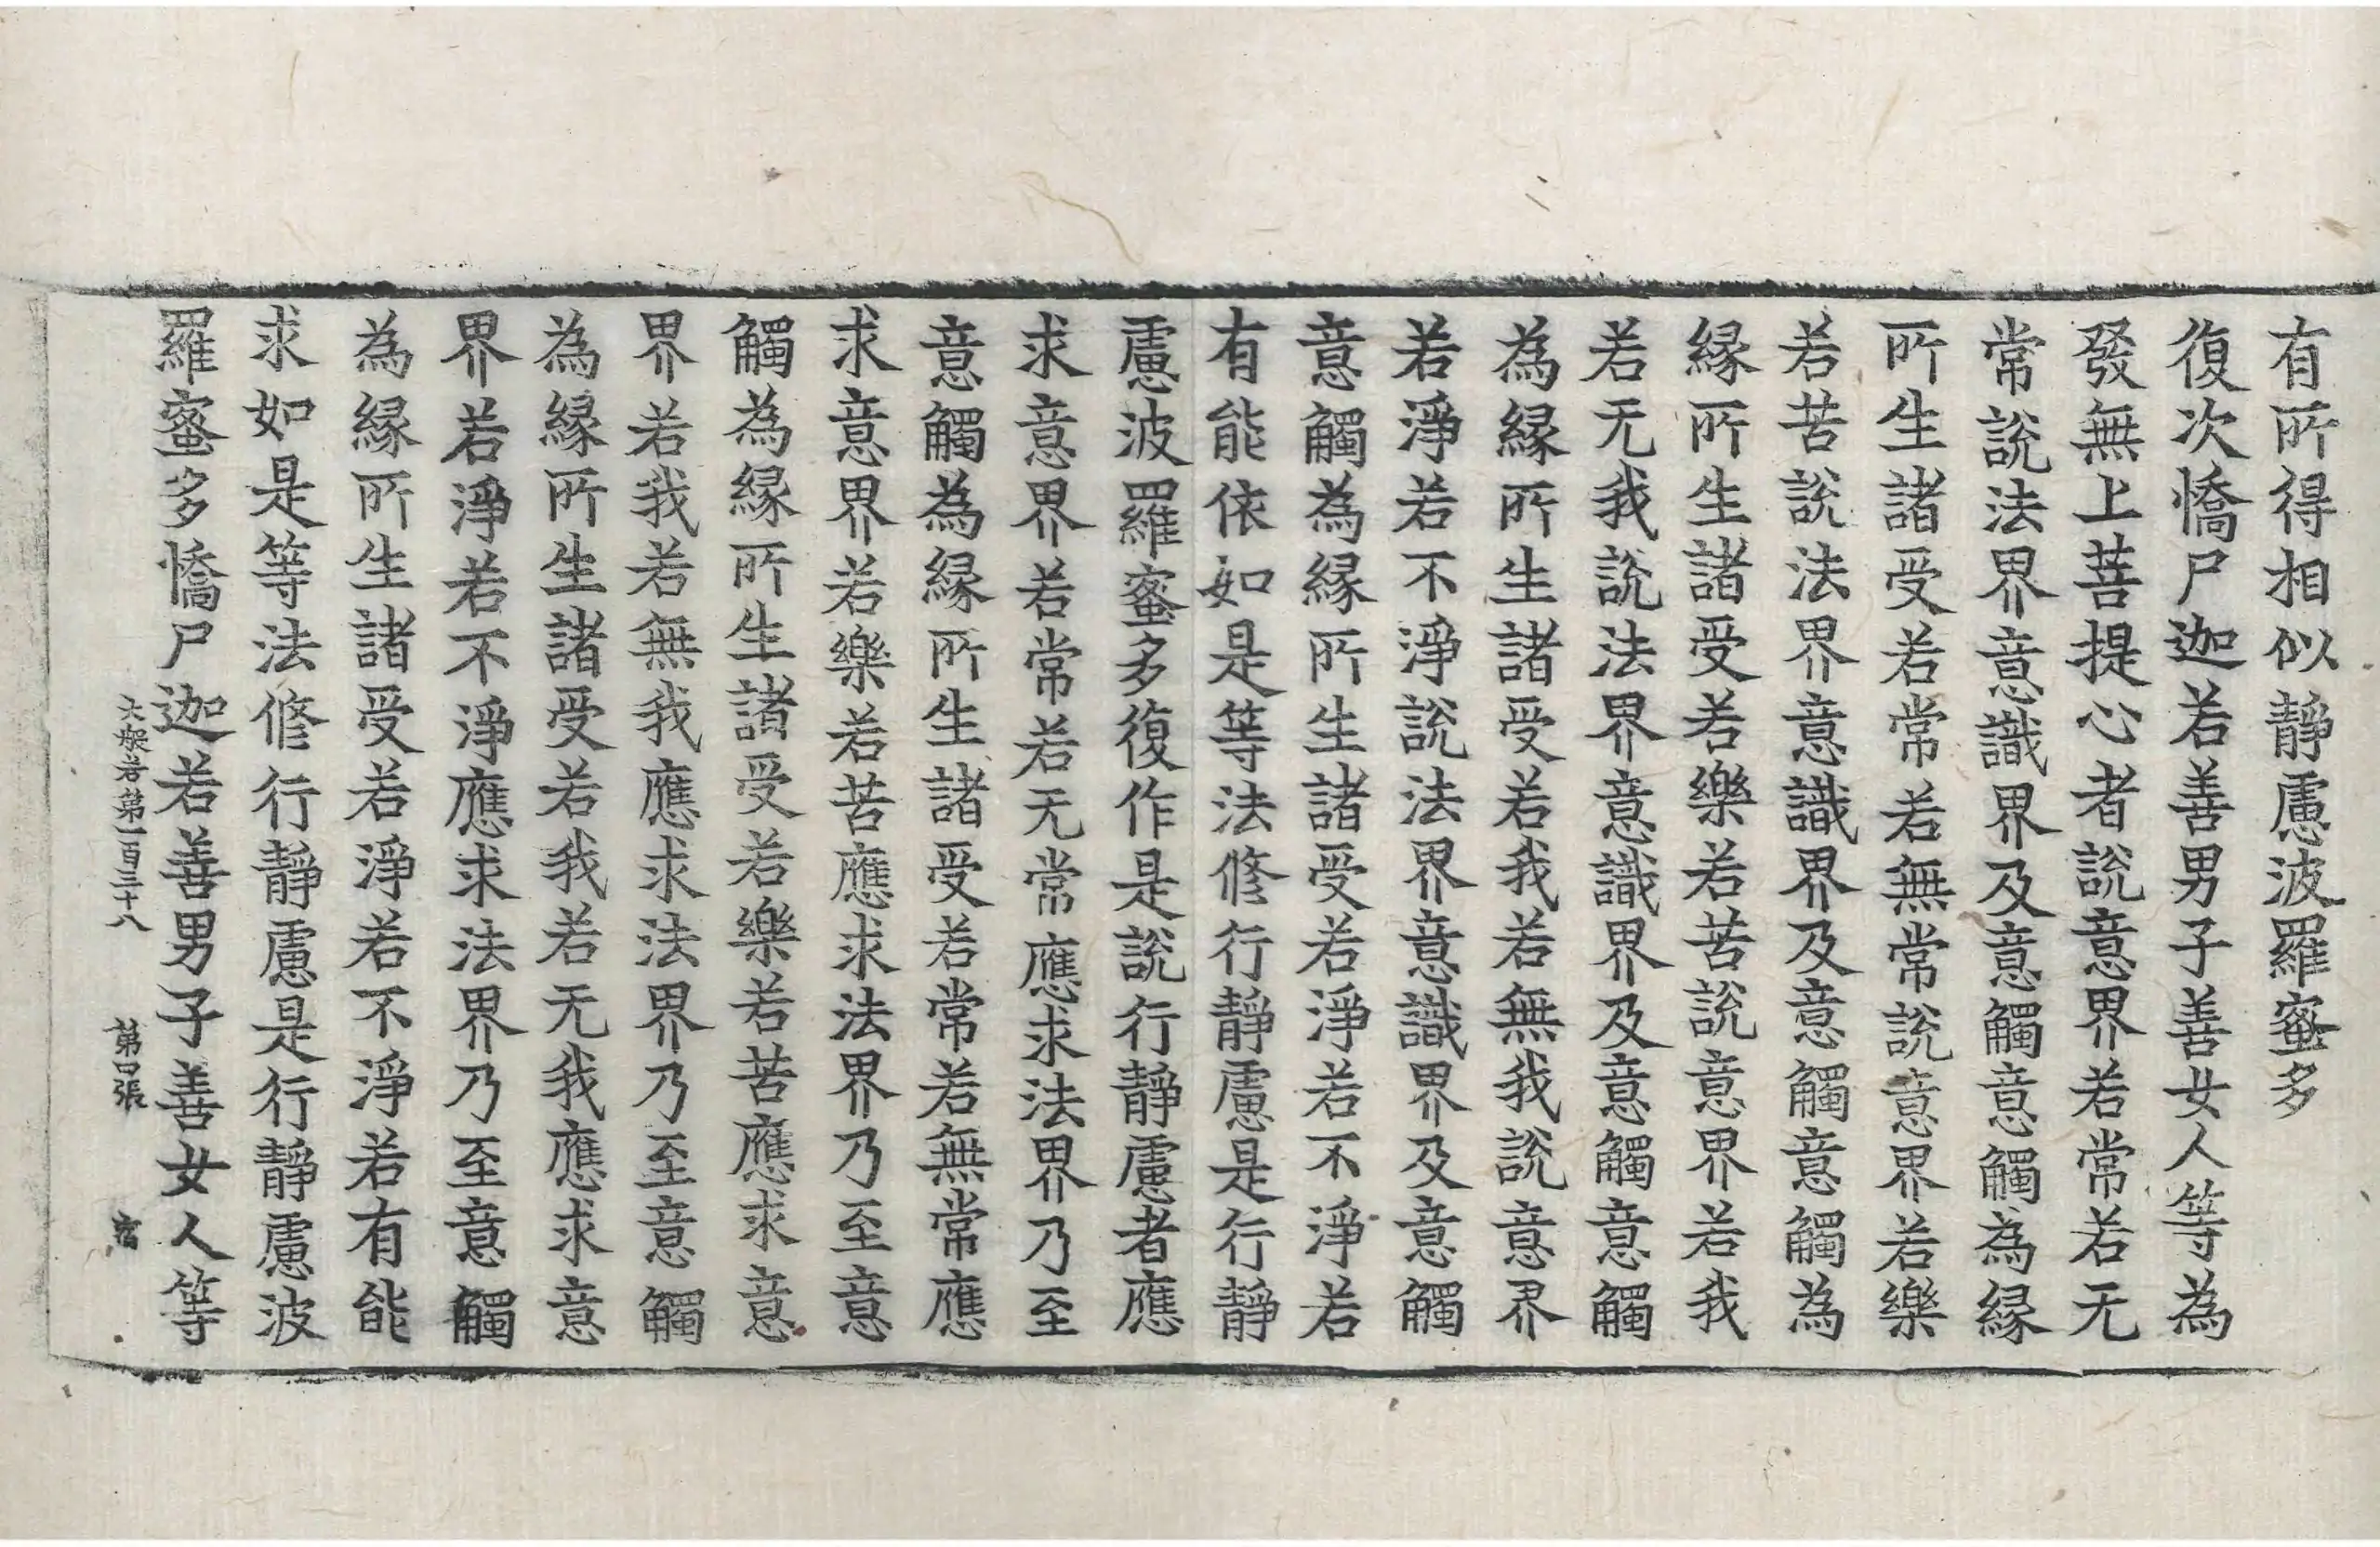 有所得相似靜慮波羅蜜多
復次憍尸迦若善男子善女人等為
發無上菩提心者說意界若常若无
常說法界意識界及意觸意觸為緣
所生諸受若常若無常說意界若樂
若苦說法界意識界及意觸意觸為
緣所生諸受若樂若苦說意界若我
若无我說法界意識界及意觸意觸
為緣所生諸受若我若無我說意界
若淨若不淨說法界意識界及意觸
意觸為緣所生諸受若淨若不淨若
有能依如是等法修行靜慮是行靜
慮波羅蜜多復作是說行靜慮者應
求意界若常若无常應求法界乃至
意觸為緣所生諸受若常若無常應
求意界若樂若苦應求法界乃至意
觸為緣所生諸受若樂若苦應求意
界若我若無我應求法界乃至意觸
為緣所生諸受若我若无我應求意
界若淨若不淨應求法界乃至意觸
為緣所生諸受若淨若不淨若有能
求如是等法修行靜慮是行靜慮波
羅蜜多憍尸迦若善男子善女人等
大般若第一百三十八 第四張 宿